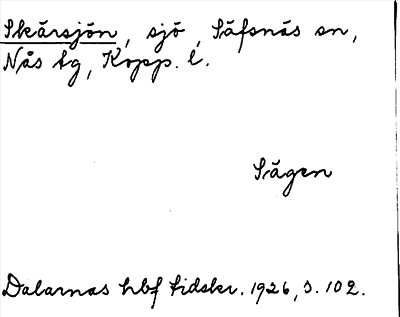 Skärsjön, sjö, Säfsnäs sn,
Nås tg, Kopp. l.
Sågen
Dalarnas hbf tidskr. 1926, s. 102.